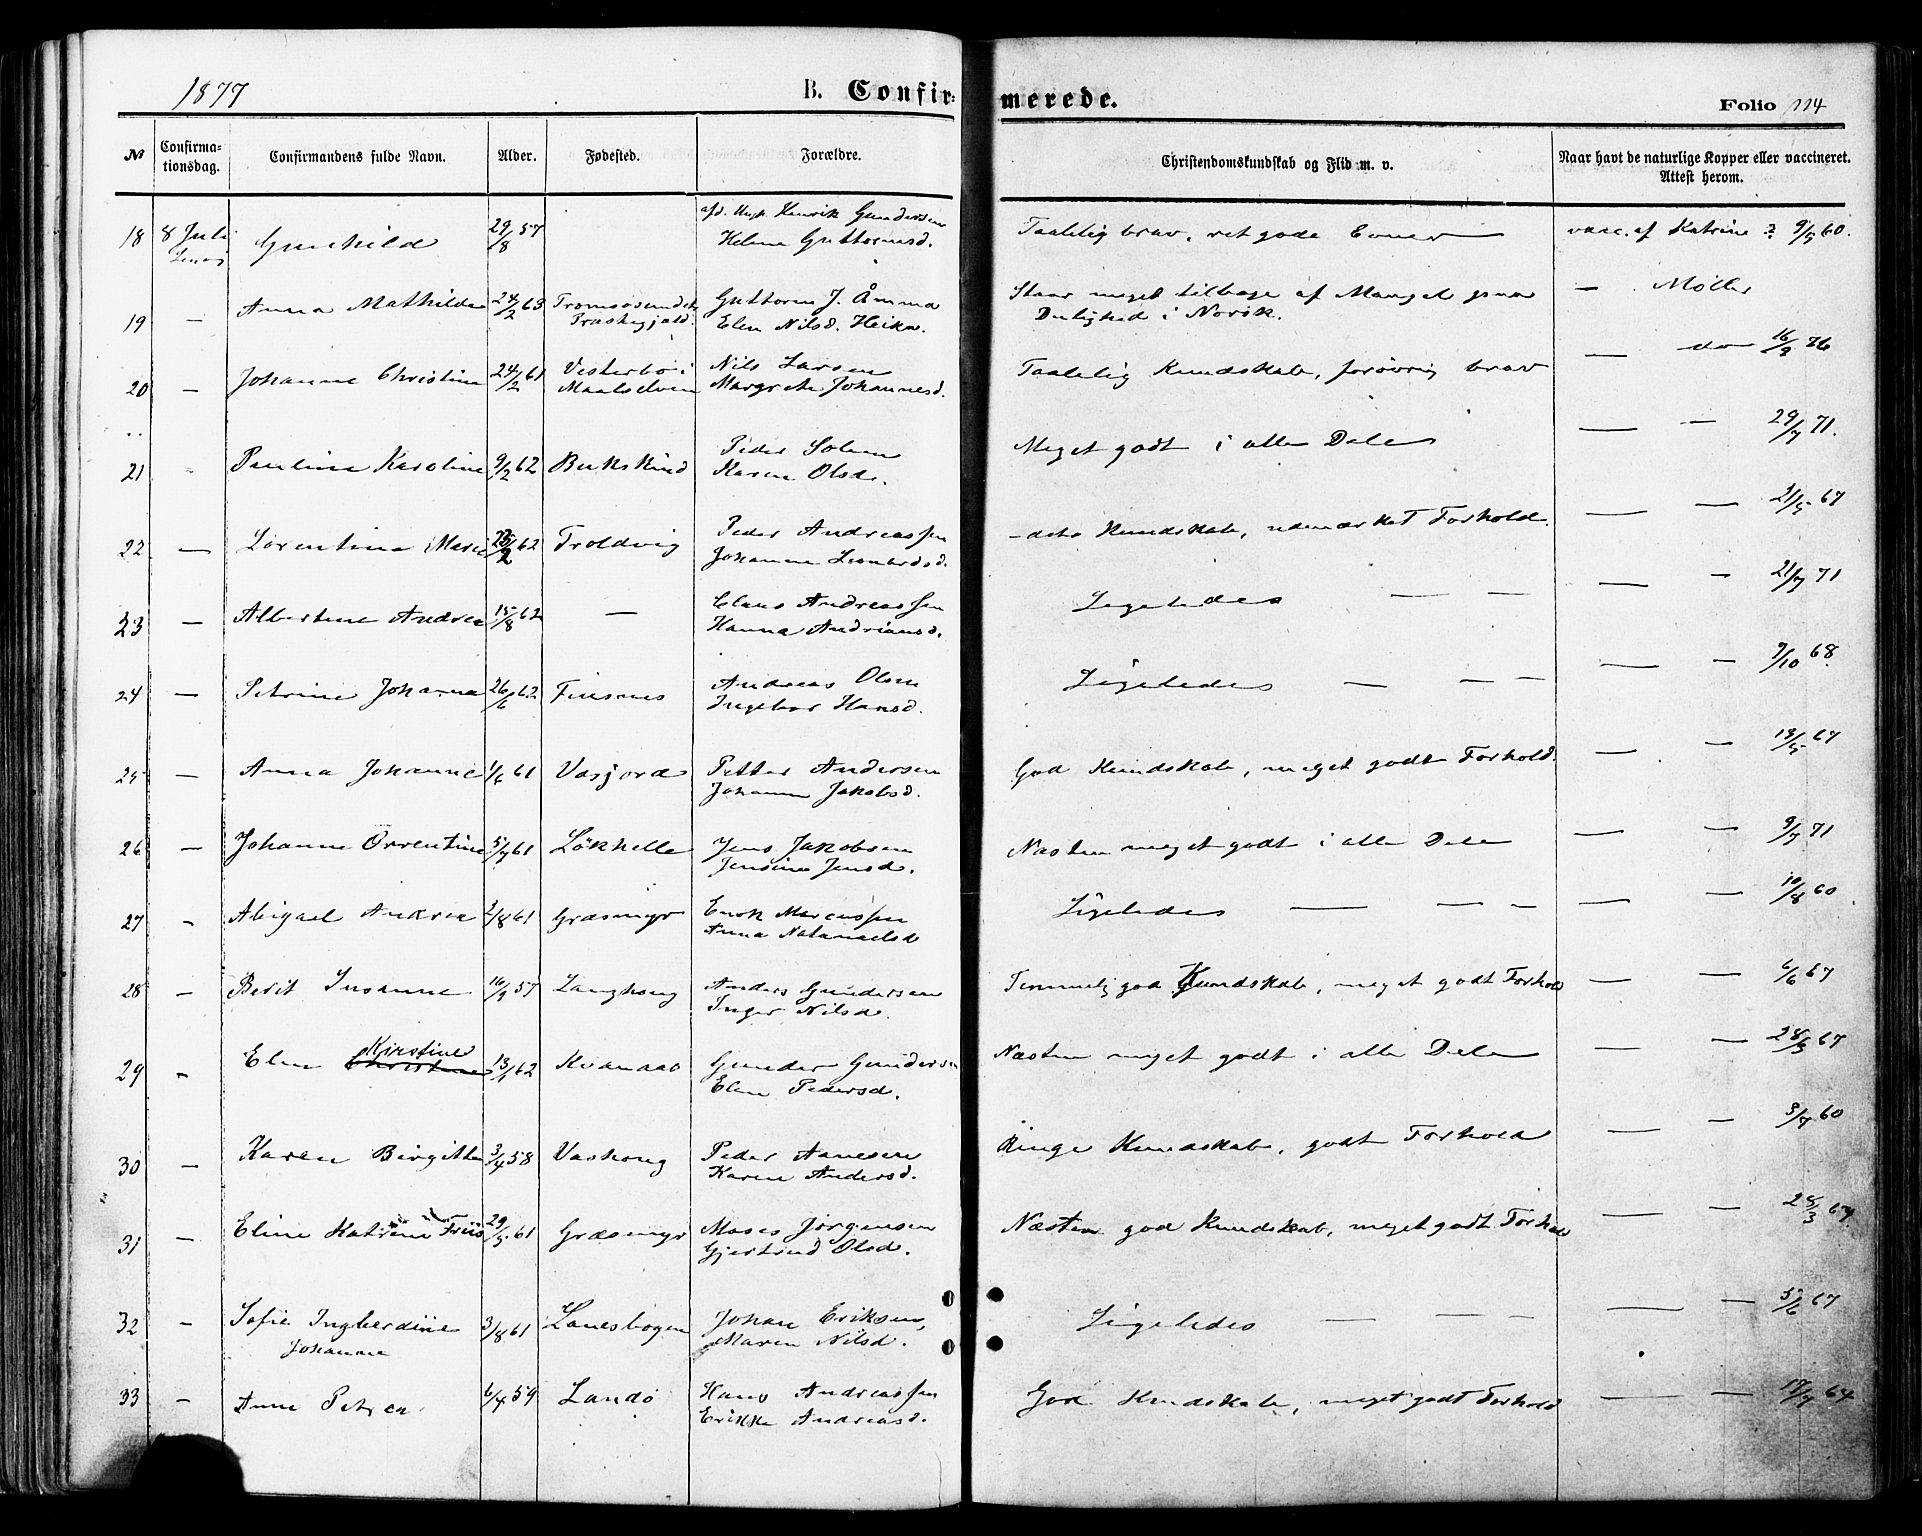 1877
B. Confirmerede.
Folio 114
No
Confirmationsdag.
Confirmandens fulde Navn.
Alder.
Fødested.
Forældre.
Christendomskundskab og Flid m. v.
Naar havt de naturlige Kopper eller vaccineret. Attest herom.
18 8 Juli Gunhild 29/8 57 afd. Henrik Gundersen
Helene Guttormsd. Taalelig brav, ret gode Evner vacc. af Katrine ? 9/5 60.
19 — Anna Mathilde 24/2 63 Tromsøsundets Præstegjæld. Guttorm J. Åmma
Elen Nilsd. Heika. Staar meget tilbage af Mangel paa
Duelighed i Norsk. — Møller
20 — Johanne Christine 24/2 61 Vesterbø i Maalselven Nils Larsen
Margrete Johannesd. Taalelig Kundskab, forøvrig brav — do 16/9 76
21 - Pauline Karoline 9/2 62 Bukskind Peder Solem
Karen Olsd. Meget godt i alle Dele — — 29/7 71.
22 — Lorentine Marie 2 62 Troldvig Peder Andreassen
Johanne Leonardsd. - deto Kundskab, udmærket Forhold. — — 21/5 67
23 — Albertine Andrea 15/8 62 — Claus Andreassen
Hanna Andriansd. Ligeledes — — — — 21/7 71
24 — Petrine Johanna 26/6 62 Finsnes Andreas Olsen
Ingebor Hansd. Ligeledes — — — — — 9/10 68.
25 — Anna Johanne 1/6 61 Vasjord Petter Andersen
Johanne Jakobsd. God Kundskab, meget godt Forhold. — — 13/5 67
26 — Johanne Orrentine 5/7 61 Løkhelle Jens Jakobsen
Jensine Jensd. Næsten meget godt i alle Dele — — 9/7 71
27 - Abigael Andrea 2/8 61 Græsmyr Enok Marcussen
Anna Natanaelsd Ligeledes — — — — — 10/8 60
28 - Berit Susanne 16/9 57 Langhoug Anders Gundersen
Inger Nilsd. Temmelig god Kundskab, meget godt Forhold — — 6/6 67
29 - Elen Kirstine 13/1 62 Kvanaas Gunder Gundersen
Elen Pedersd. Næsten meget godt i alle Dele — — 28/3 67
30 — Karen Birgitte 3/4 58 Vashoug Peder Aanesen
Karen Andersd. Ringe Kundskab, godt Forhold — — 3/7 60
31 — Eline Katrine Friis 29/5 61 Græsmyr Moses Jørgensen
Gjertrud Olsd. Næsten god Kundskab, meget godt Forhold — — 28/3 67.
32 — Sofie Ingberdine
Johanna 3/8 61 Lanesbogen Johan Eriksen,
Maren Nilsd. Ligeledes — — — — — 5/6 67
33 - Anne Petrea 6/4 59 Landø Hans Andreassen
Erikke Andreasd. God Kundskab, meget godt Forhold — — 17/7 64